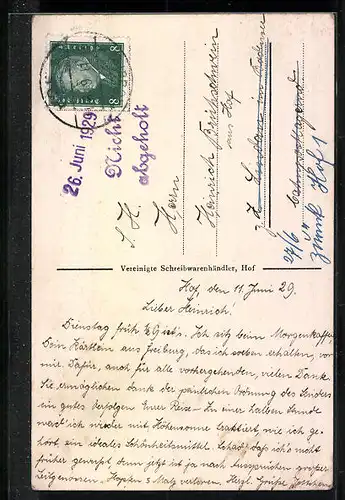 26. Juni 1929
Nicht
abgeholt
S. H.
Herrn
Heinrich
aus Hof
z. Z. Lindau im Bodensee
bahnpostlagernd
27/6
zurück Hof
Vereinigte Schreibwarenhändler, Hof
Hof, den 11. Juni 29.
Lieber Heinrich!
Dienstag früh Ich sitz beim Morgenkaffee
Dein Kärtlein aus Freiburg, das ich soeben erhalten, vor
mir. Dafür, auch für alle vorhergehenden, vielen Dank.
Sie ermöglichen dank der peinlichen Ordnung des Senders
ein gutes Verfolgen Eurer Reise. In einer halben Stunde
werd' ich wieder mit Höhensonne traktiert, wie ich ge-
hört ein ideales Schönheitsmittel. Schade daß ich's nicht
früher genoß denn jetzt ist ja nach Aussprüchen großer
Zeitgenossen Hopfen u. Malz verloren. Herzl. Grüße